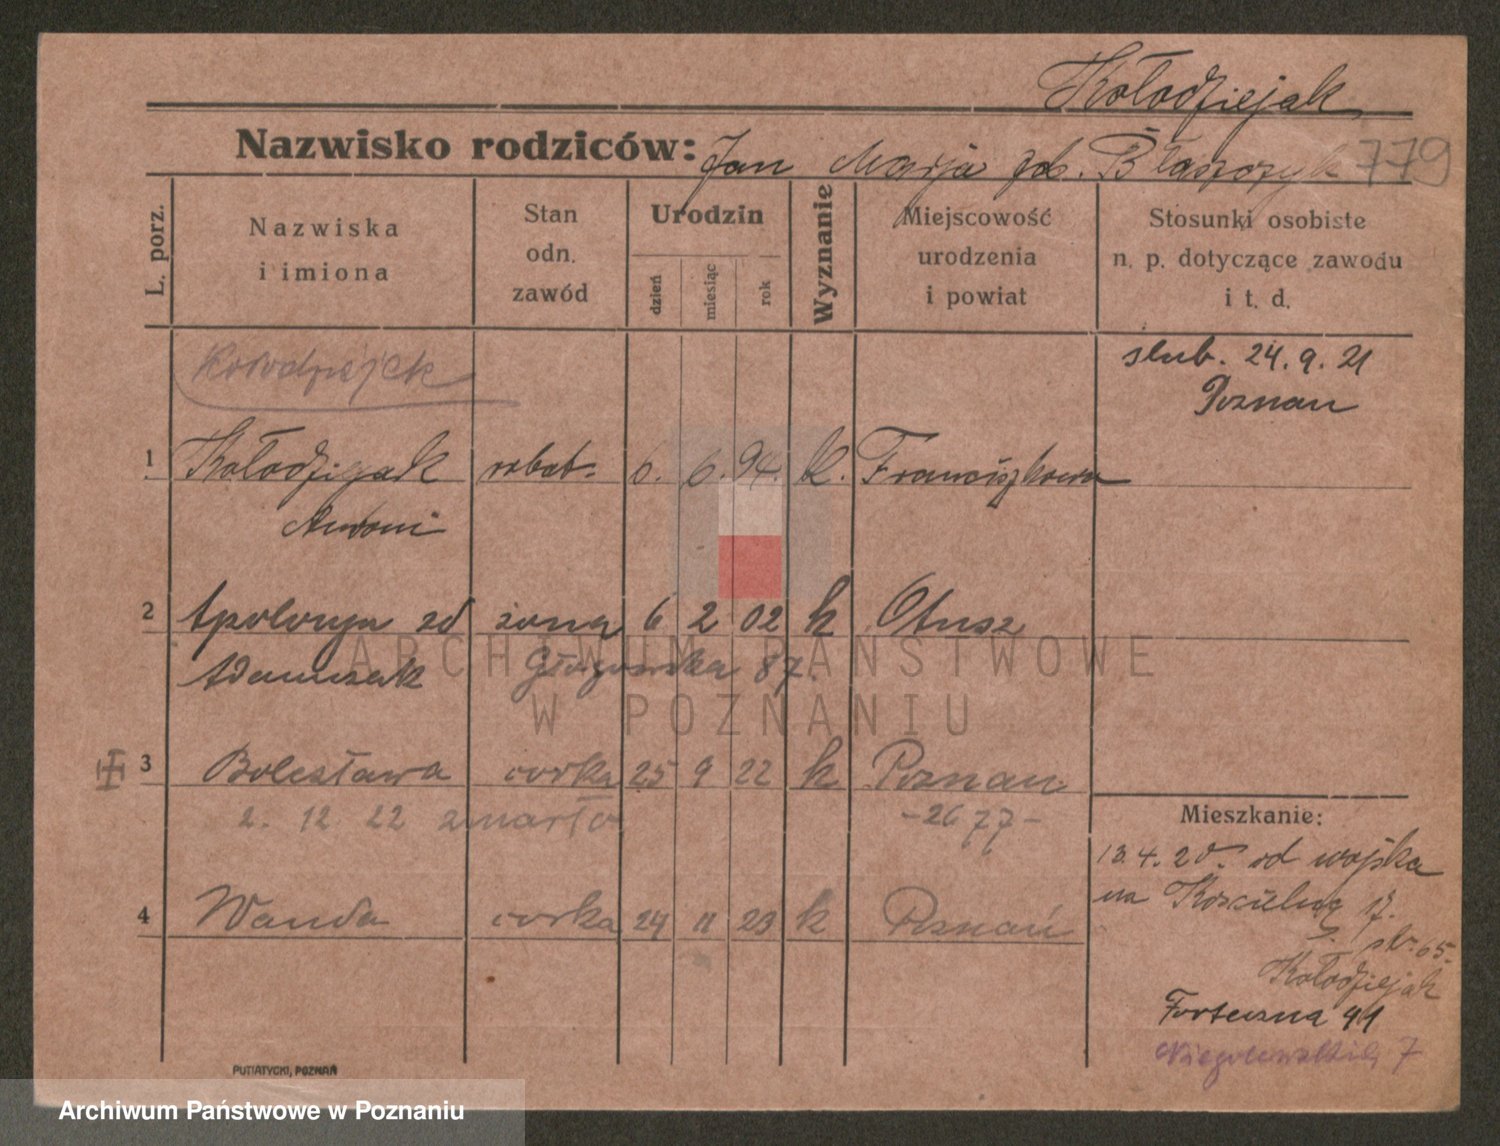 Kołodziejak
Nazwisko rodziców: Jan Marja zd. Błaszczyk 779
L. porz.
Nazwiska
i imiona
Stan
odn.
zawód
Urodzin
dzień
miesiąc
rok
Wyznanie
Miejscowość
urodzenia
i powiat
Stosunki osobiste
n. p. dotyczące zawodu
i t. d.
Kołodziejek
slub. 24.9.21
Poznan
1 Kołodziejak robot. 6. 6. 94. k. Franciszkowo
Antoni
2 Apolonja zd żona 6 2 02 k Otusz
Adamczak Głogowska 87.
3 Bolesława corka 25 9 22 k Poznan
2. 12. 22 zmarła -2677-
4 Wanda corka 24 11 23 k Poznań
Mieszkanie:
13.4.20. od wojska
na Kościelną 17.
Kołodziejak
Forteczna 41
Niegolewskich 7
PUTIATYCKI, POZNAŃ
ARCHIWUM PAŃSTWOWE
W POZNANIU
Archiwum Państwowe w Poznaniu